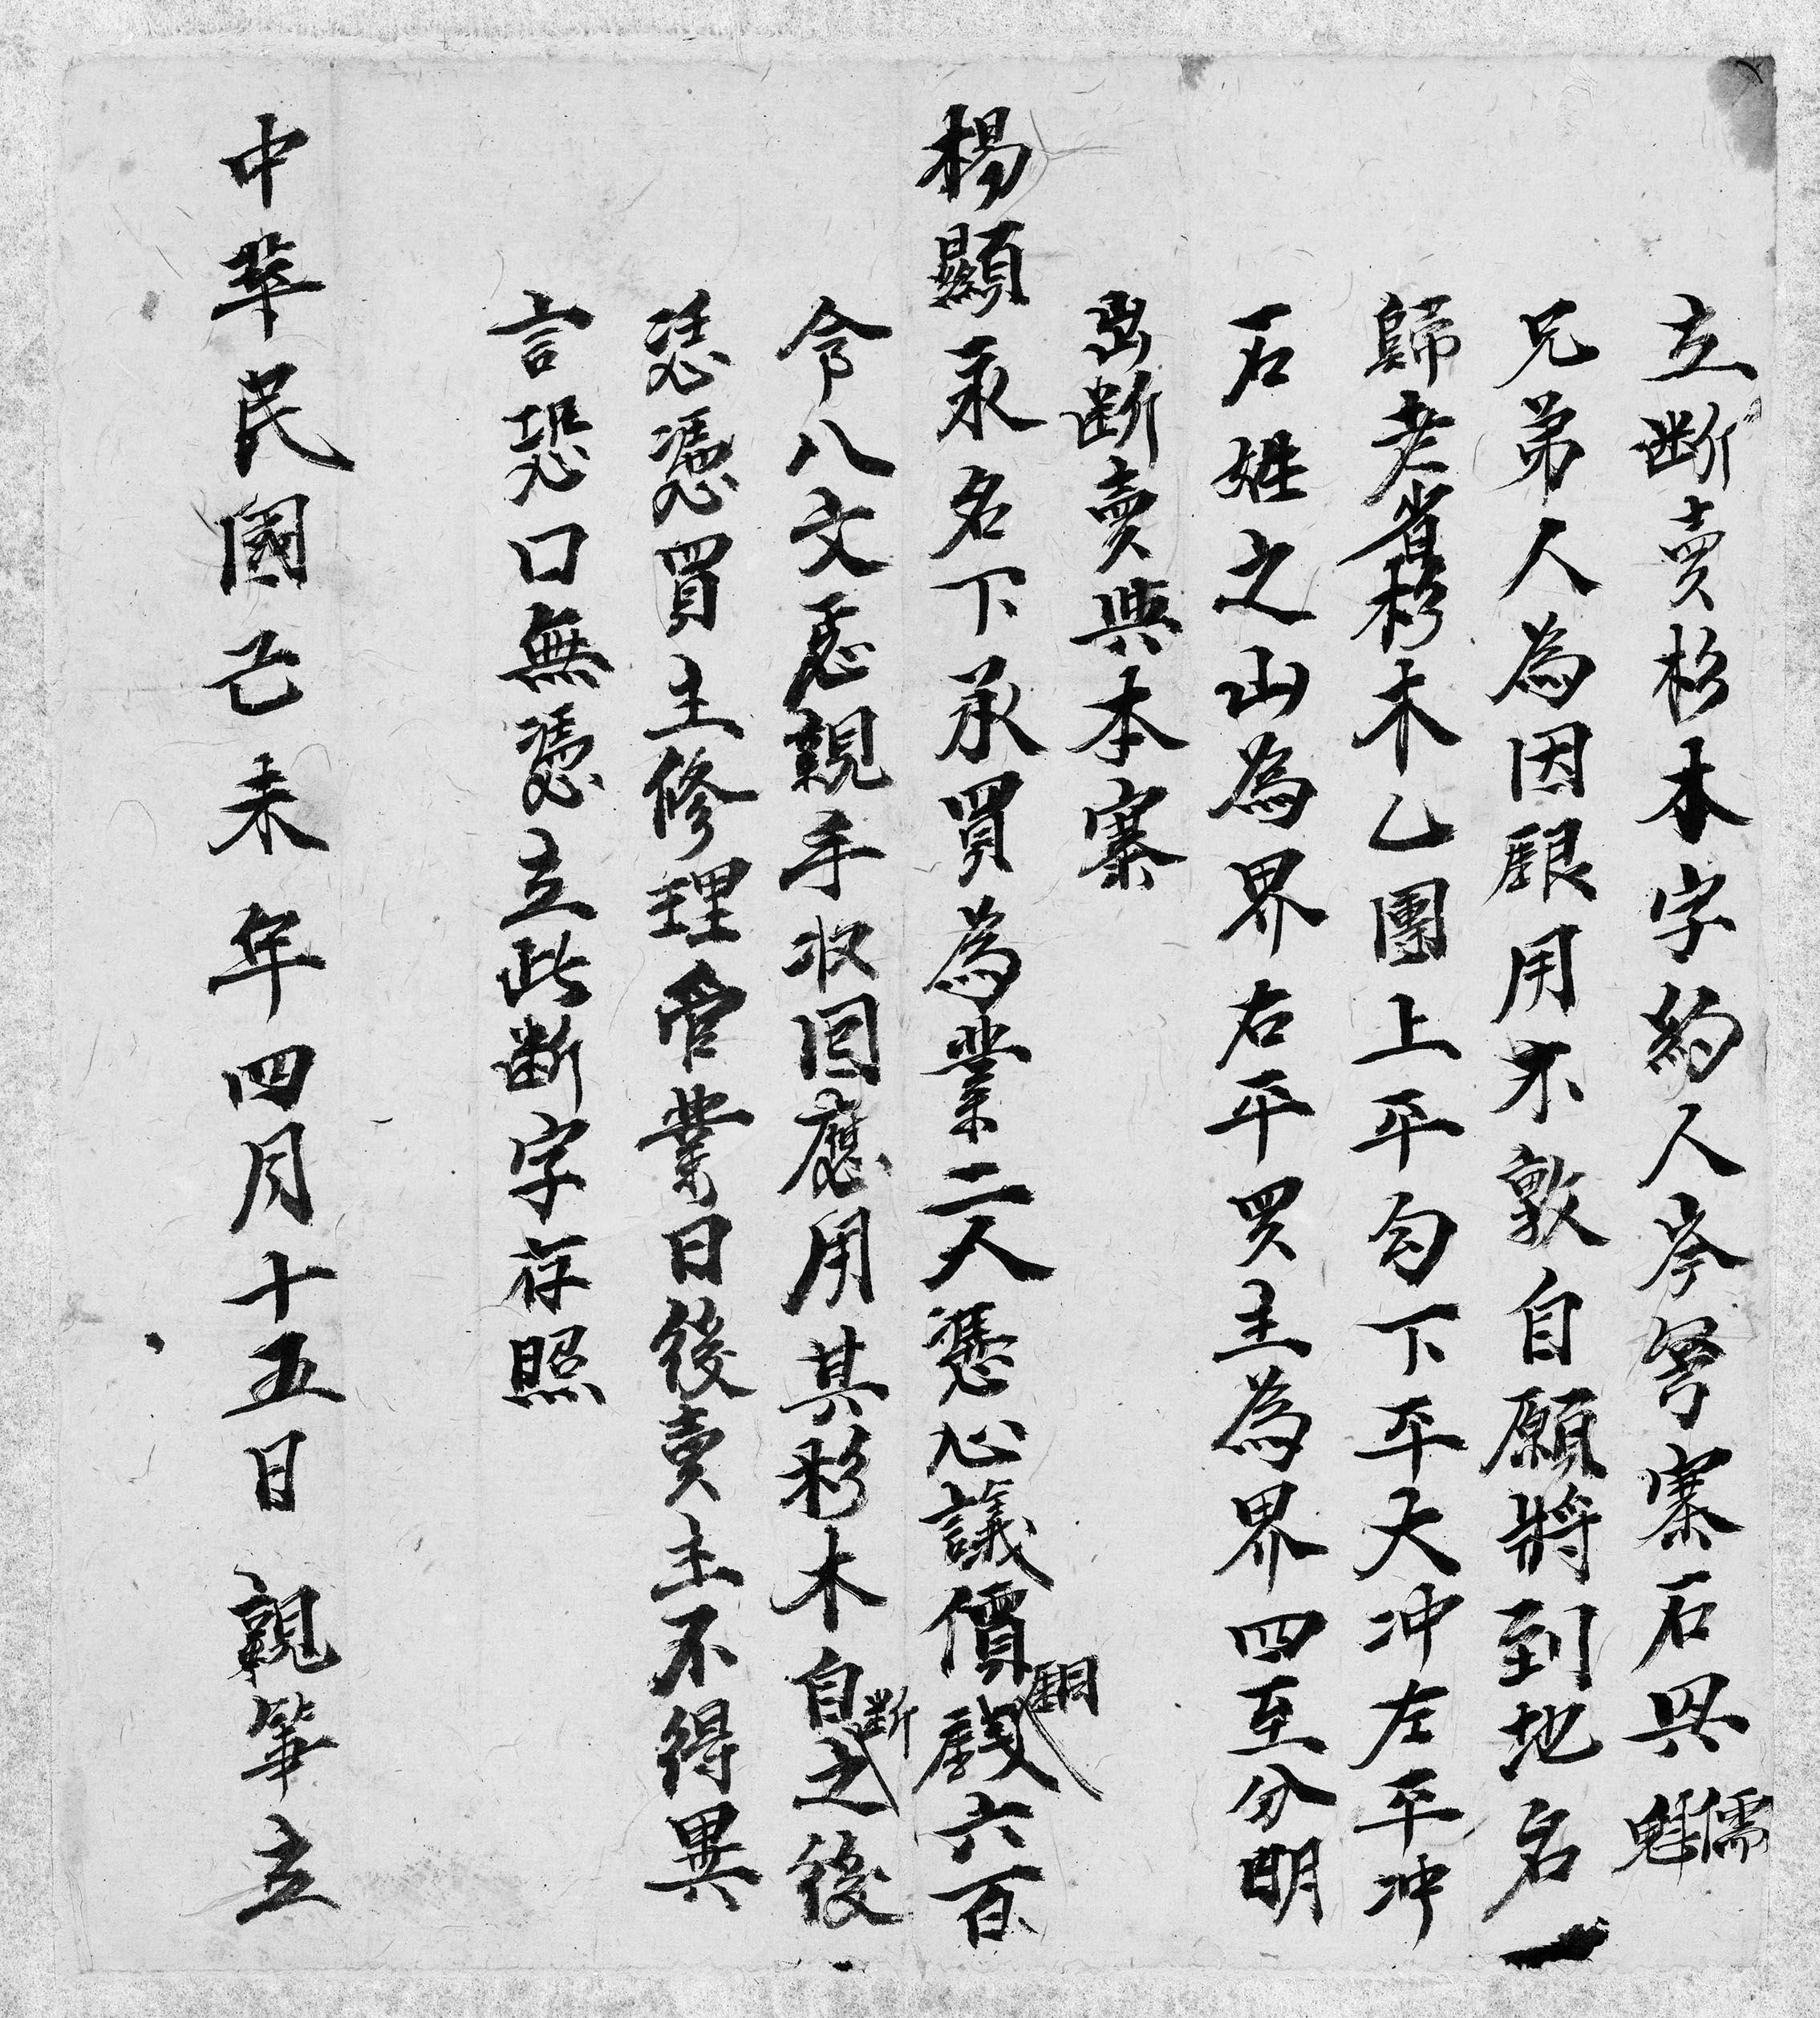 立断賣杉木字約人岑努寨石興魁儒
兄弟人為因限用不敦自願將到地名
歸老省杉木乙團上平勾下平大冲左平冲
石姓之山為界右平買主為界四至分明
出断賣與本寨
楊顯永名下承買為業二人憑心議價銅錢六百
令八文忢親手收囬應用其杉木自断之後
恁憑買主修理管業日後賣主不得異
言恐口無憑立此断字存照
中華民國己未年四月十五日 親筆立